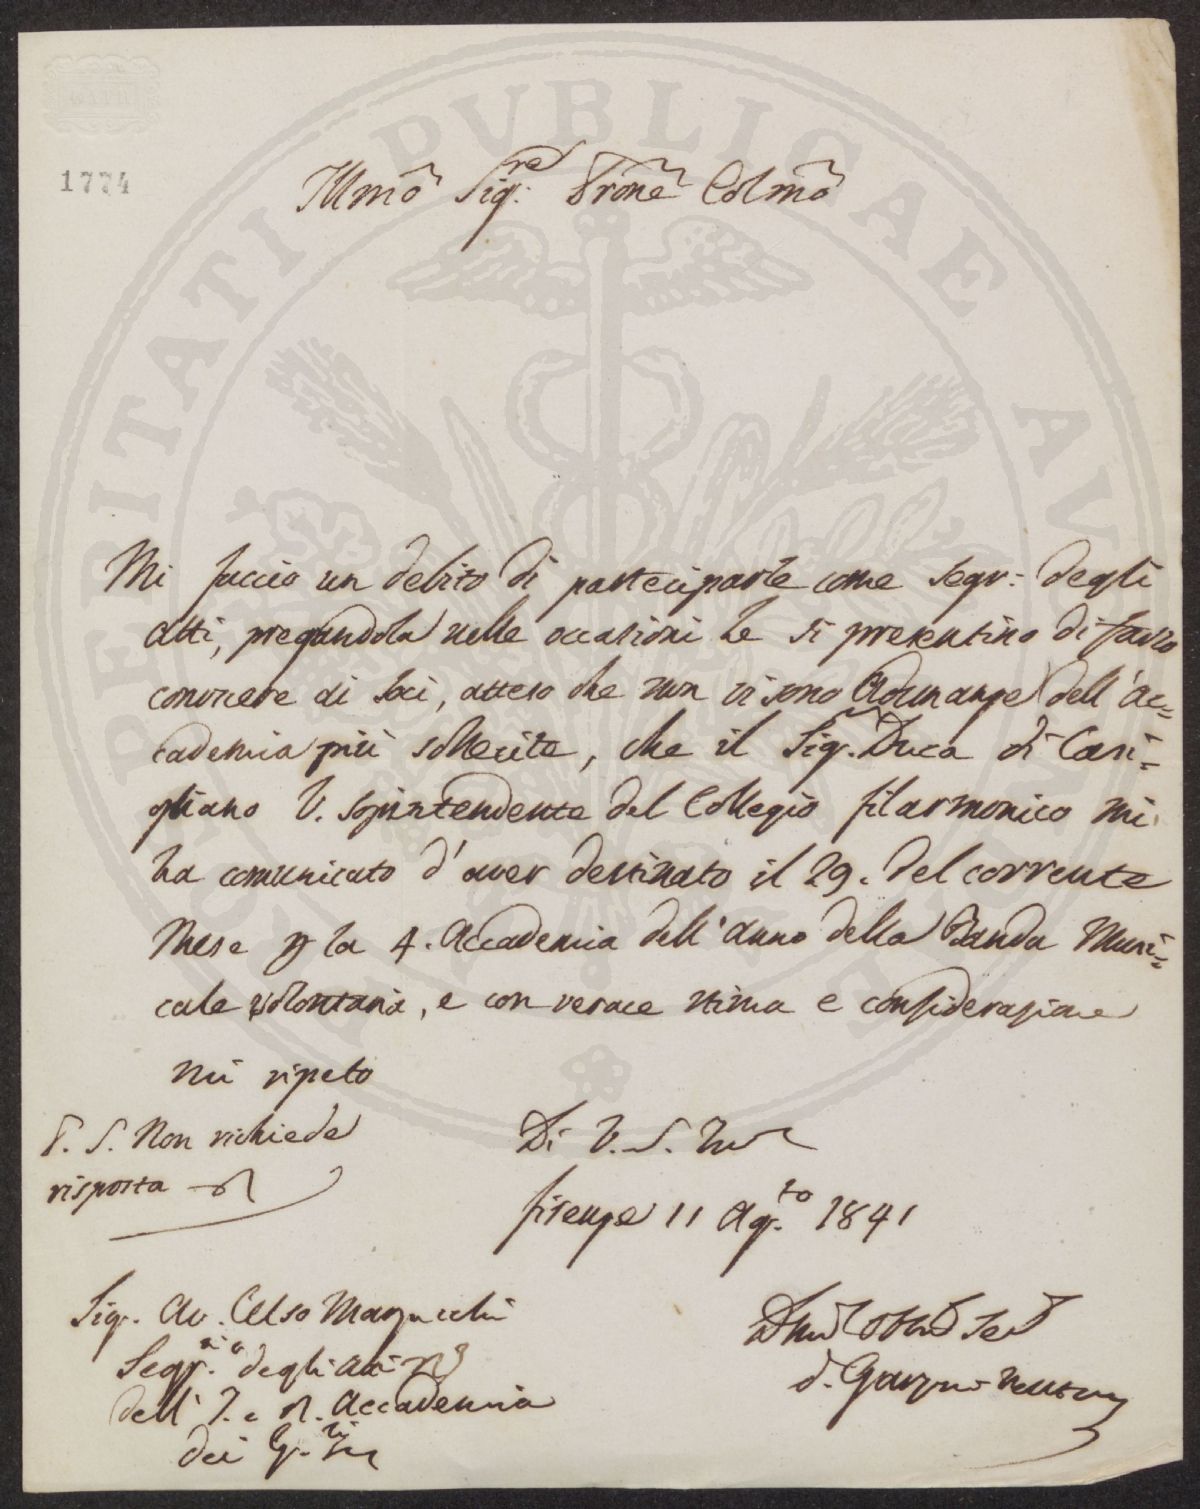 1774
Illmo Sig.re Prone Colmo
Mi faccio un debito di parteciparle come Segr: degli
atti, pregandola nelle occasioni che si presentino di farlo
conoscere ai Soci, atteso che non vi sono Adunanze dell'Ac=
cademia più sollecite, che il Sigr. Duca di Casi=
gliano V. Sopintendente del Collegio filarmonico mi
ha comunicato d'aver destinato il 29. del corrente
Mese p la 4. Accademia dell'anno della Banda Musi=
cale volontaria, e con verace stima e considerazione
mi ripeto
P. S. Non richiede
risposta
Di V. S. Illma
firenze 11 Ag.to 1841
Sig. Av. Celso Marzucchi
Segr.rio degli atti
dell' I. e R. Accademia
dei G.
Devmo Obbmo Ser
PROSPERITATI PUBLICAE AUGENDAE